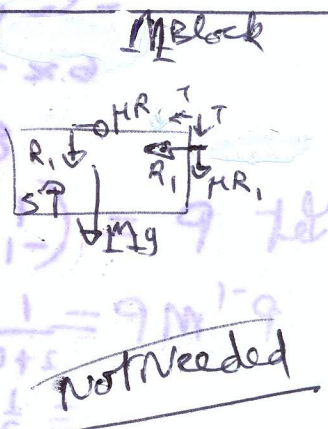 M Block
μR, T T
R₁ R₁ μR₁
S
Mg
Not Needed